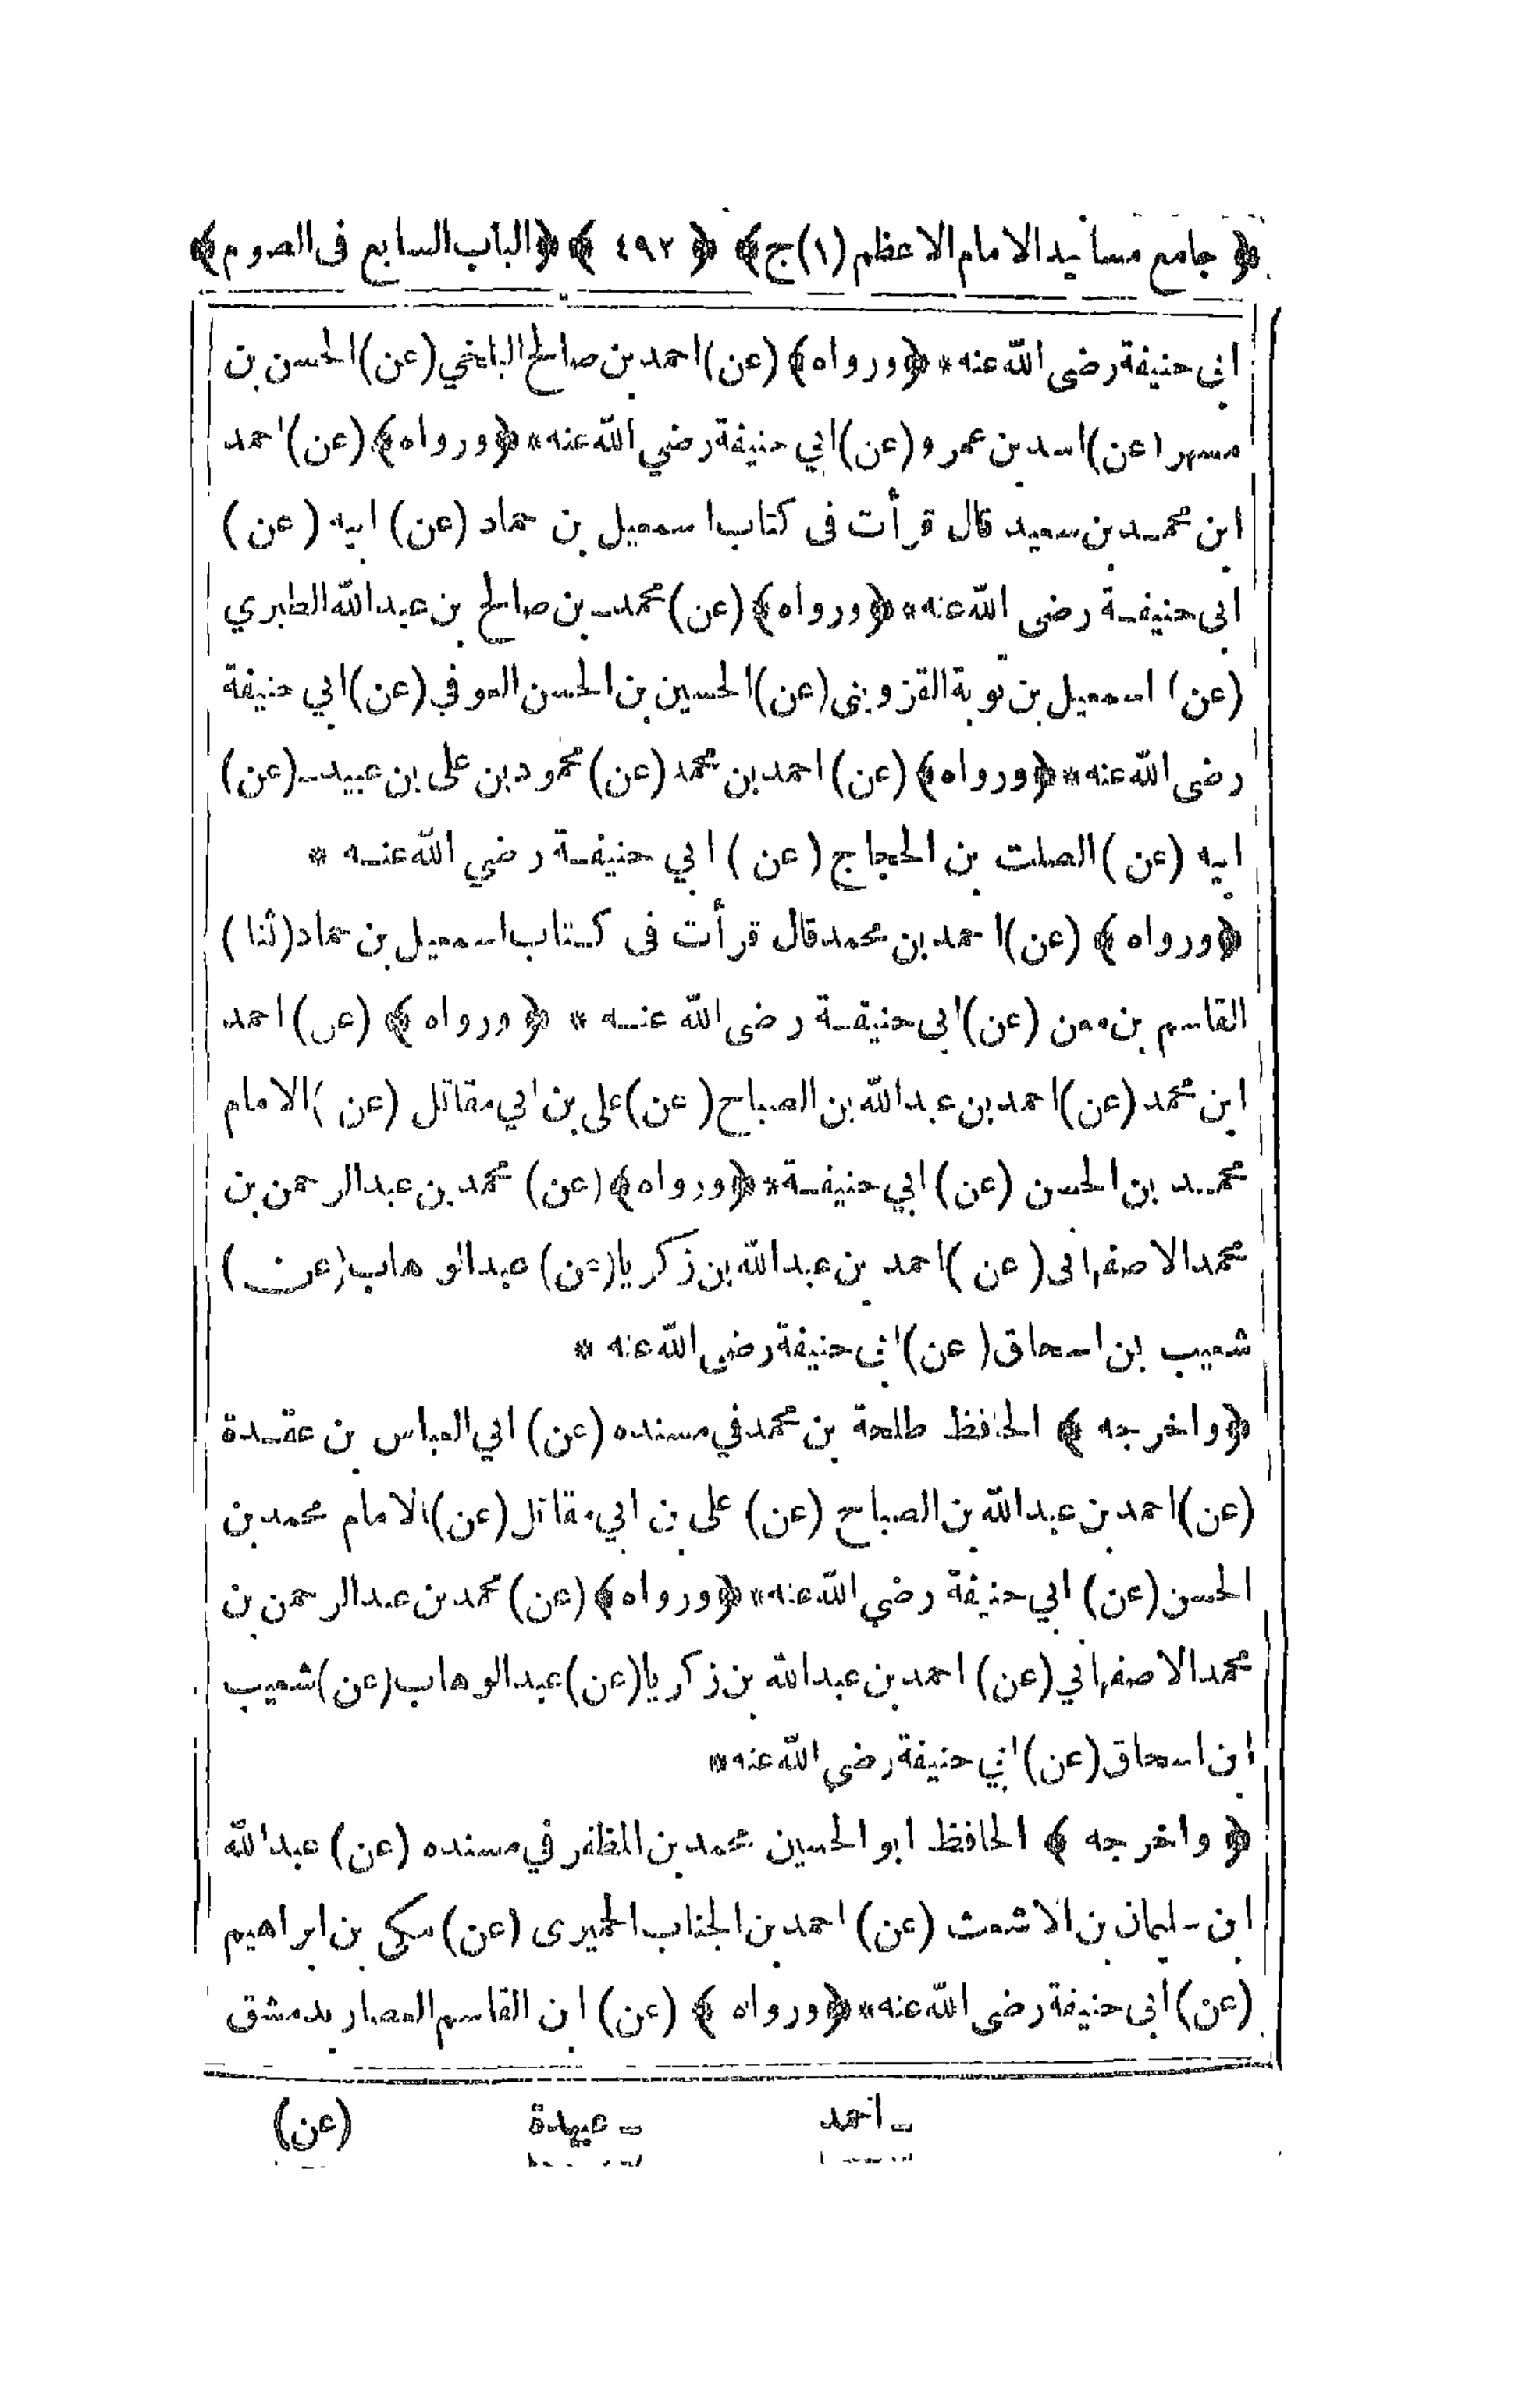 ﴿ جامع مسانيد الامام الاعظم (١) ج ﴾ ﴿ ٤٩٢ ﴾ ﴿ الباب السابع فى الصوم ﴾
ابى حنيفة رضى الله عنه * ﴿ ورواه ﴾ (عن) احمد بن صالح البلخي (عن) الحسن بن
مسهر (عن) اسد بن عمرو (عن) ابي حنيفة رضي الله عنه * ﴿ ورواه ﴾ (عن) احمد
ابن محمد بن سعيد قال قرأت فى كتاب اسمعيل بن حماد (عن) ابيه (عن)
ابى حنيفة رضى الله عنه * ﴿ ورواه ﴾ (عن) محمد بن صالح بن عبد الله الطبري
(عن) اسمعيل بن توبة القزوينى (عن) الحسين بن الحسن العوفي (عن) ابي حنيفة
رضى الله عنه * ﴿ ورواه ﴾ (عن) احمد بن محمد (عن) محمود بن على بن عبيد (عن)
ابيه (عن) الصلت بن الحجاج (عن) ابي حنيفة رضي الله عنه *
﴿ ورواه ﴾ (عن) احمد بن محمد قال قرأت فى كتاب اسمعيل بن حماد (ثنا)
القاسم بن معن (عن) ابى حنيفة رضى الله عنه * ﴿ ورواه ﴾ (عن) احمد
ابن محمد (عن) احمد بن عبد الله بن الصباح (عن) على بن ابي مقاتل (عن) الامام
محمد بن الحسن (عن) ابي حنيفة * ﴿ ورواه ﴾ (عن) محمد بن عبد الرحمن بن
محمد الاصفهانى (عن) احمد بن عبد الله بن زكريا (عن) عبد الوهاب (عن)
شعيب بن اسحاق (عن) ابى حنيفة رضى الله عنه *
﴿ واخرجه ﴾ الحافظ طلحة بن محمد في مسنده (عن) ابي العباس بن عقدة
(عن) احمد بن عبد الله بن الصباح (عن) على بن ابي مقاتل (عن) الامام محمد بن
الحسن (عن) ابي حنيفة رضي الله عنه * ﴿ ورواه ﴾ (عن) محمد بن عبد الرحمن بن
محمد الاصفهاني (عن) احمد بن عبد الله بن زكريا (عن) عبد الوهاب (عن) شعيب
ابن اسحاق (عن) ابي حنيفة رضي الله عنه *
﴿ واخرجه ﴾ الحافظ ابو الحسين محمد بن المظفر في مسنده (عن) عبد الله
ابن سليمان بن الاشعث (عن) احمد بن الجناب الحميرى (عن) مكي بن ابراهيم
(عن) ابى حنيفة رضى الله عنه * ﴿ ورواه ﴾ (عن) ابن القاسم العصار بدمشق
ـ احمد ـ عبيدة (عن)